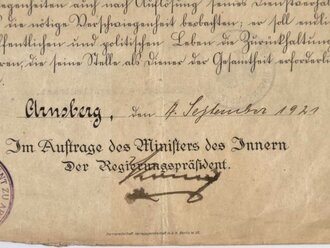 egenheiten auch nach Auflösung seines Dienstverhäl
die nötige Verschwiegenheit beobachten; er soll endlic
ffentlichen und politischen Leben die Zurückhaltung
ren, die seine Stelle als Diener der Gesamtheit erforderlic
Arnsberg, den 7. September 1921
Im Auftrage des Ministers des Innern
Der Regierungspräsident.